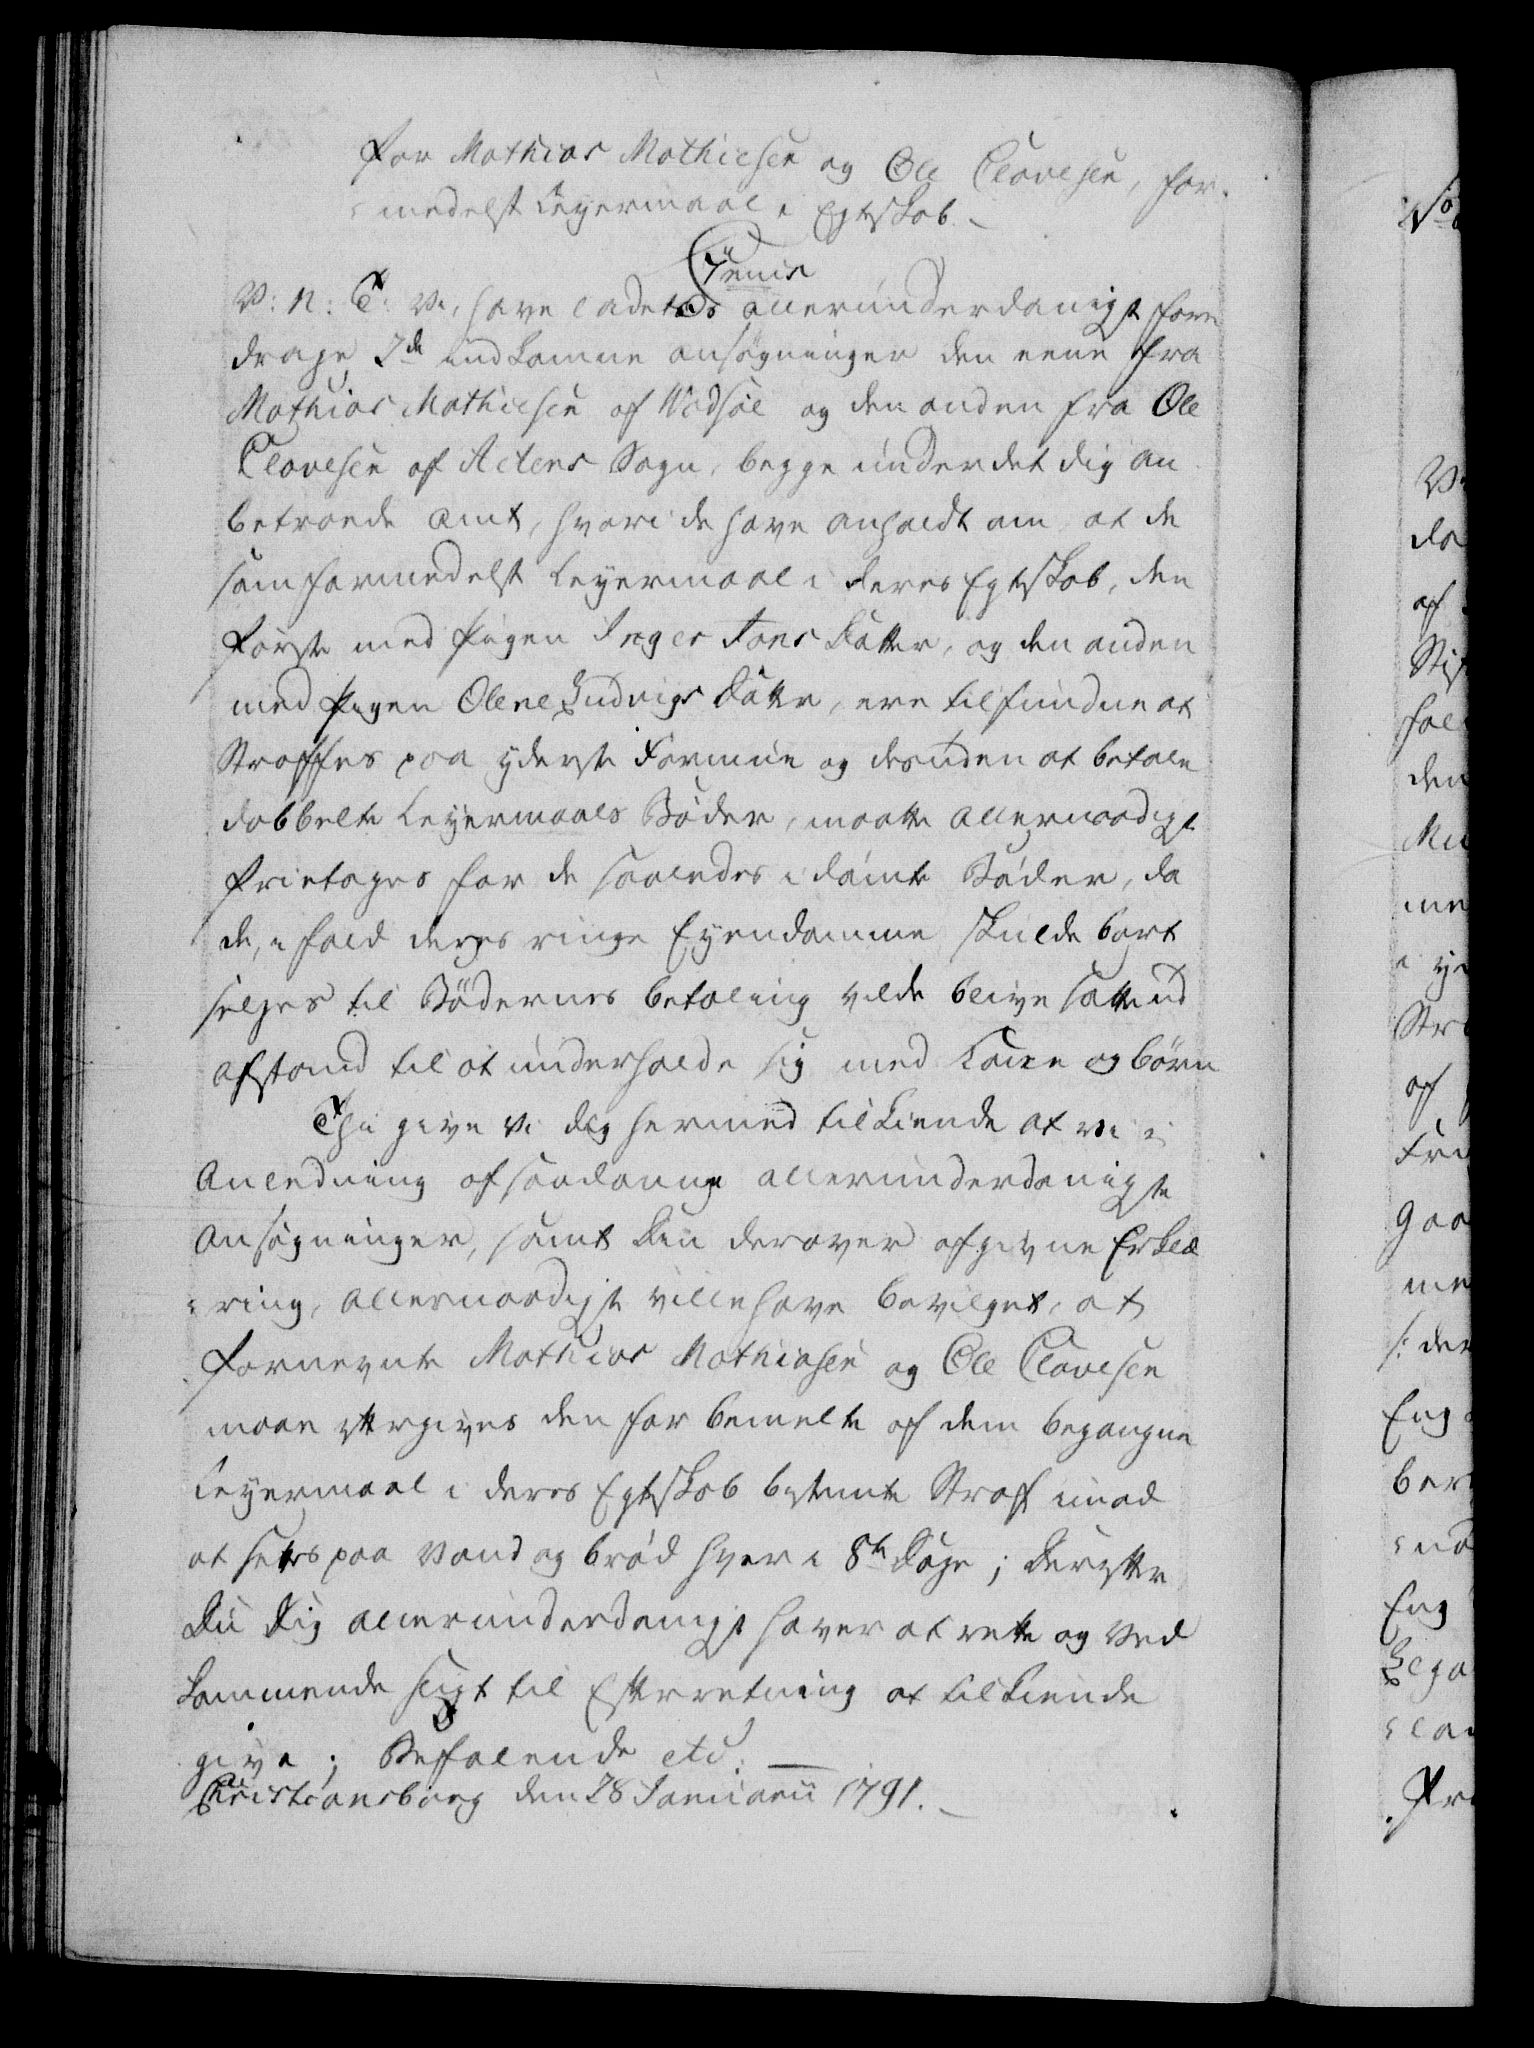 For Mathias Mathiesen og Ole Clavesen, for-
medelst Leyermaal i Egteskab.
Jenis
V: N: G: Vi, have ladet os allerunderdanigst fore
drage 2de indkomne ansøgninger den eene fra
Mathias Mathiesen af Wadsøe og den anden fra Ole
Clavesen af Altens Sogn, begge under det dig an
betroede Amt, hvori de have anholdt om, at de
som formedelst Leyermaal i deres Egteskab, den
første med Pigen Inger Fons Datter, og den anden
med Pigen Olene Ludvigs Datter, ere tilfundne at
Straffes paa yderste Formue og desuden at betale
dobbelte Leyermaals Bøder, maatte allernaadigst
fritages for de saaledes i dømte Bøder, da
de, i fald deres ringe Eyendomme skulde bort
selges til Bødernes betaling vilde blive satte ud
afstand til at underholde sig med Kone og børn
Thi give Vi dig hermed tilkiende at vi i
Anledning af saadanne allerunderdanigste
Ansøgninger, samt Din derover afgivne Erklæ
ring, allernaadigst ville have bevilget, at
fornevnte Mathias Mathiasen og Ole Clavesen
maae eftergives den for bemelte af dem begangne
Leyermaal i deres Egteskab bestemte Straf imod
at settes paa Vand og brød hver i 8te Dage; Derefter
Du Dig allerunderdanigst haver at rette og Ved
kommende sligt til Efterretning at tilkiende
give; Befalende etc.
Christiansborg den 28 Januarii 1791.